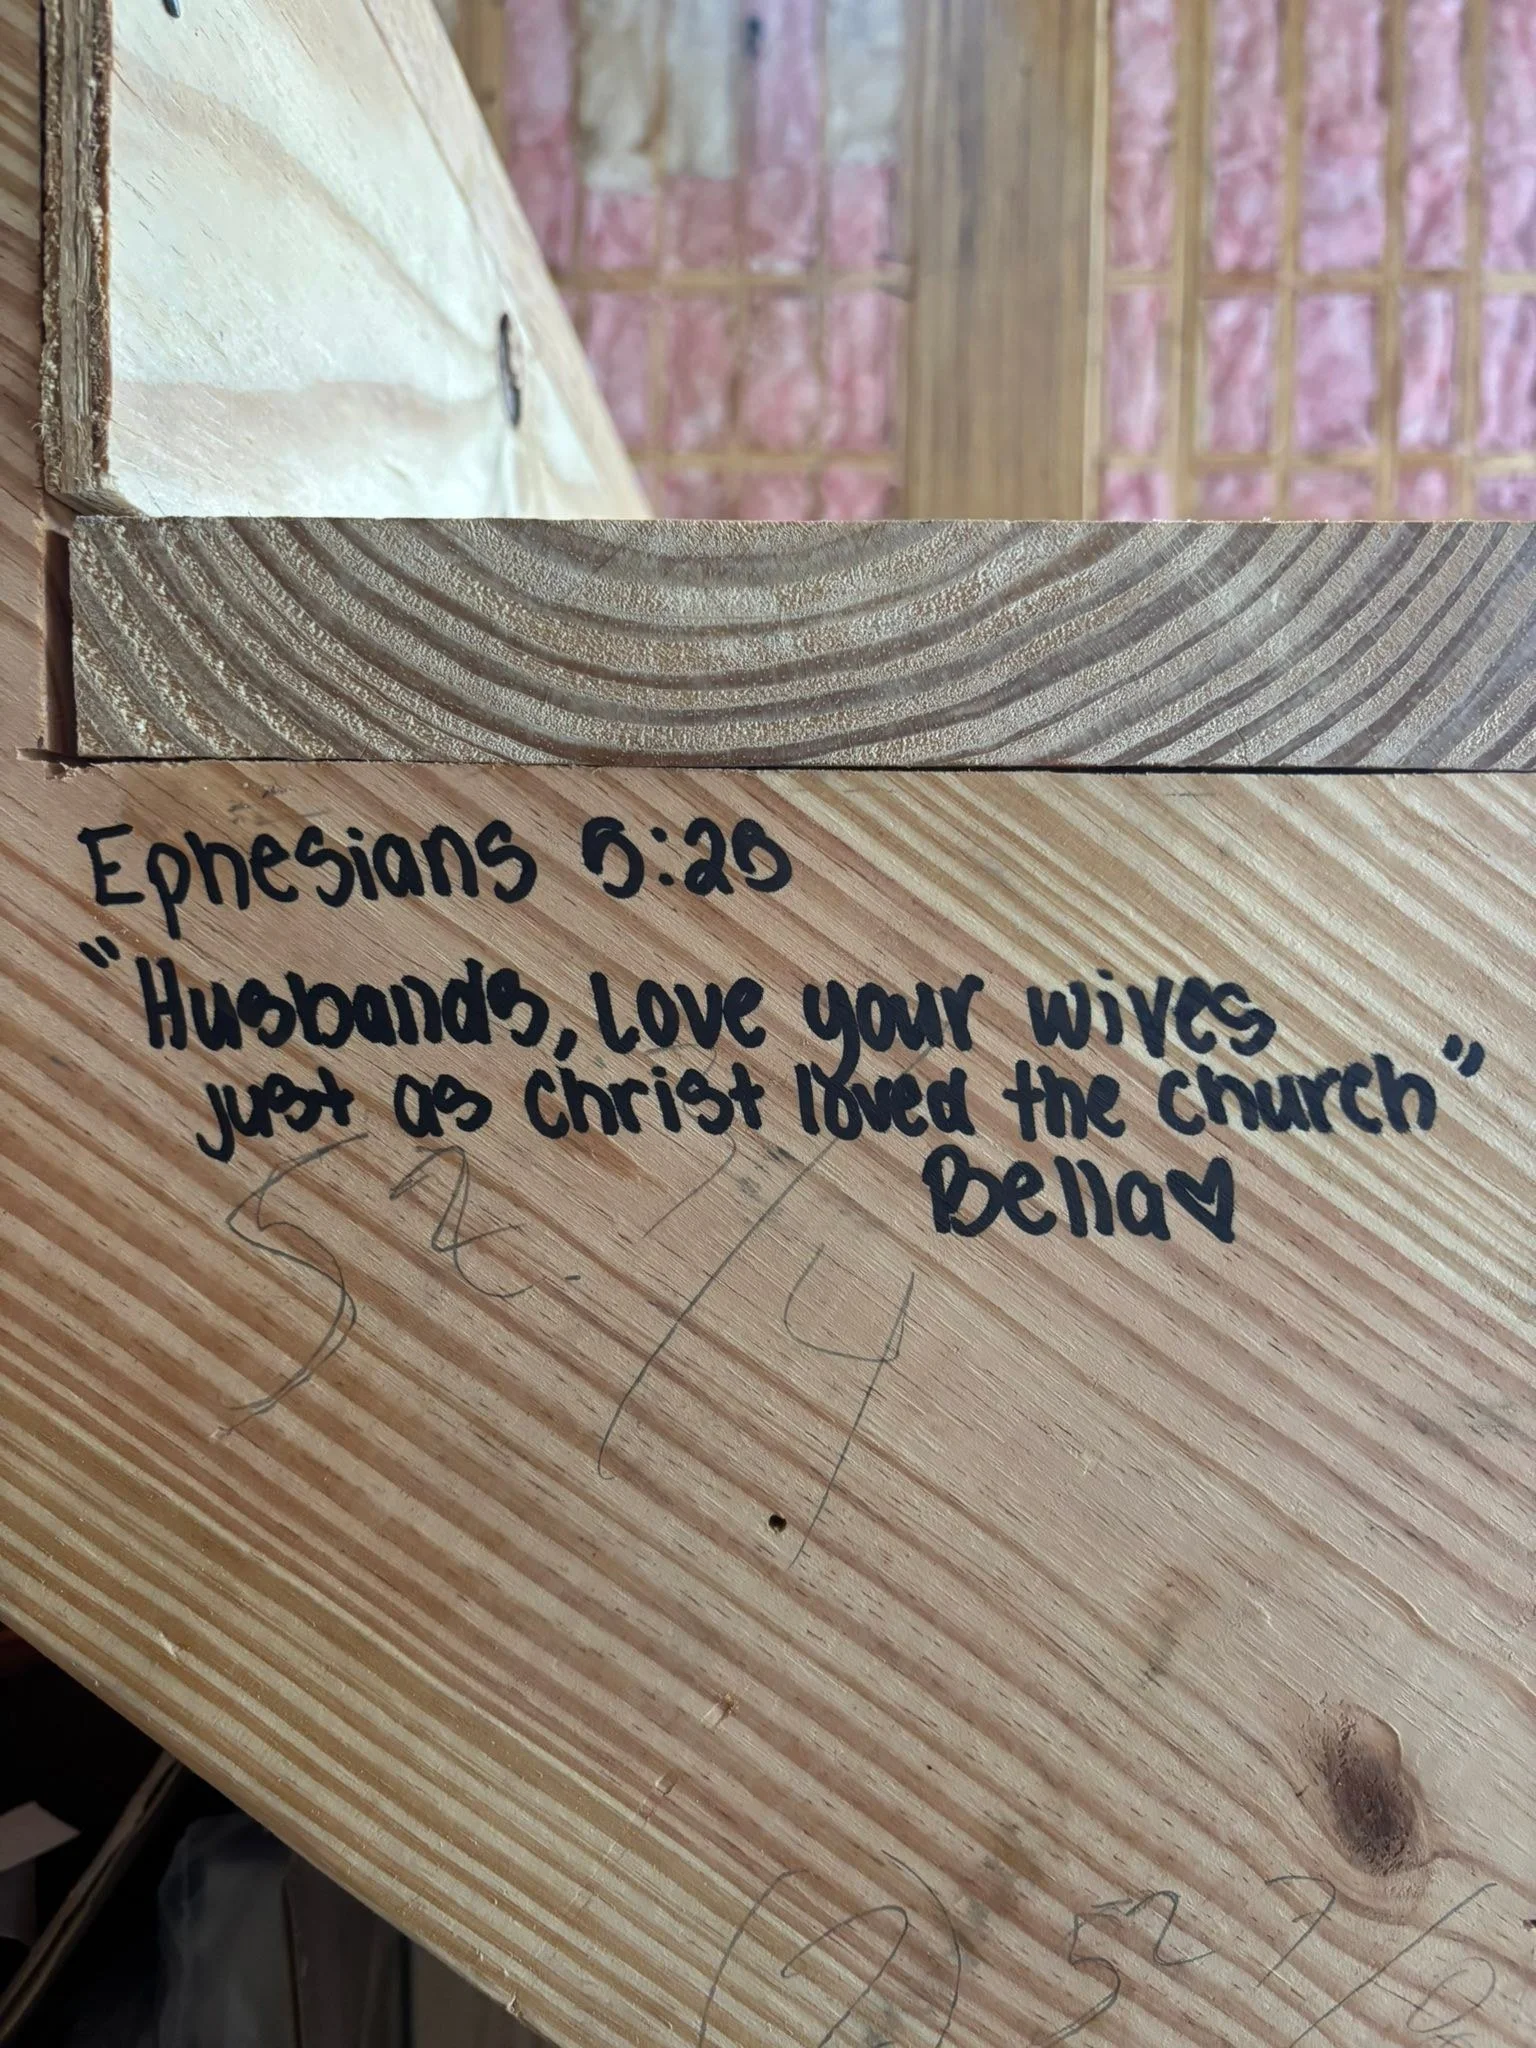 Ephesians 5:25
"Husbands, Love your wives
just as Christ loved the church"
Bella♥
52 3/4